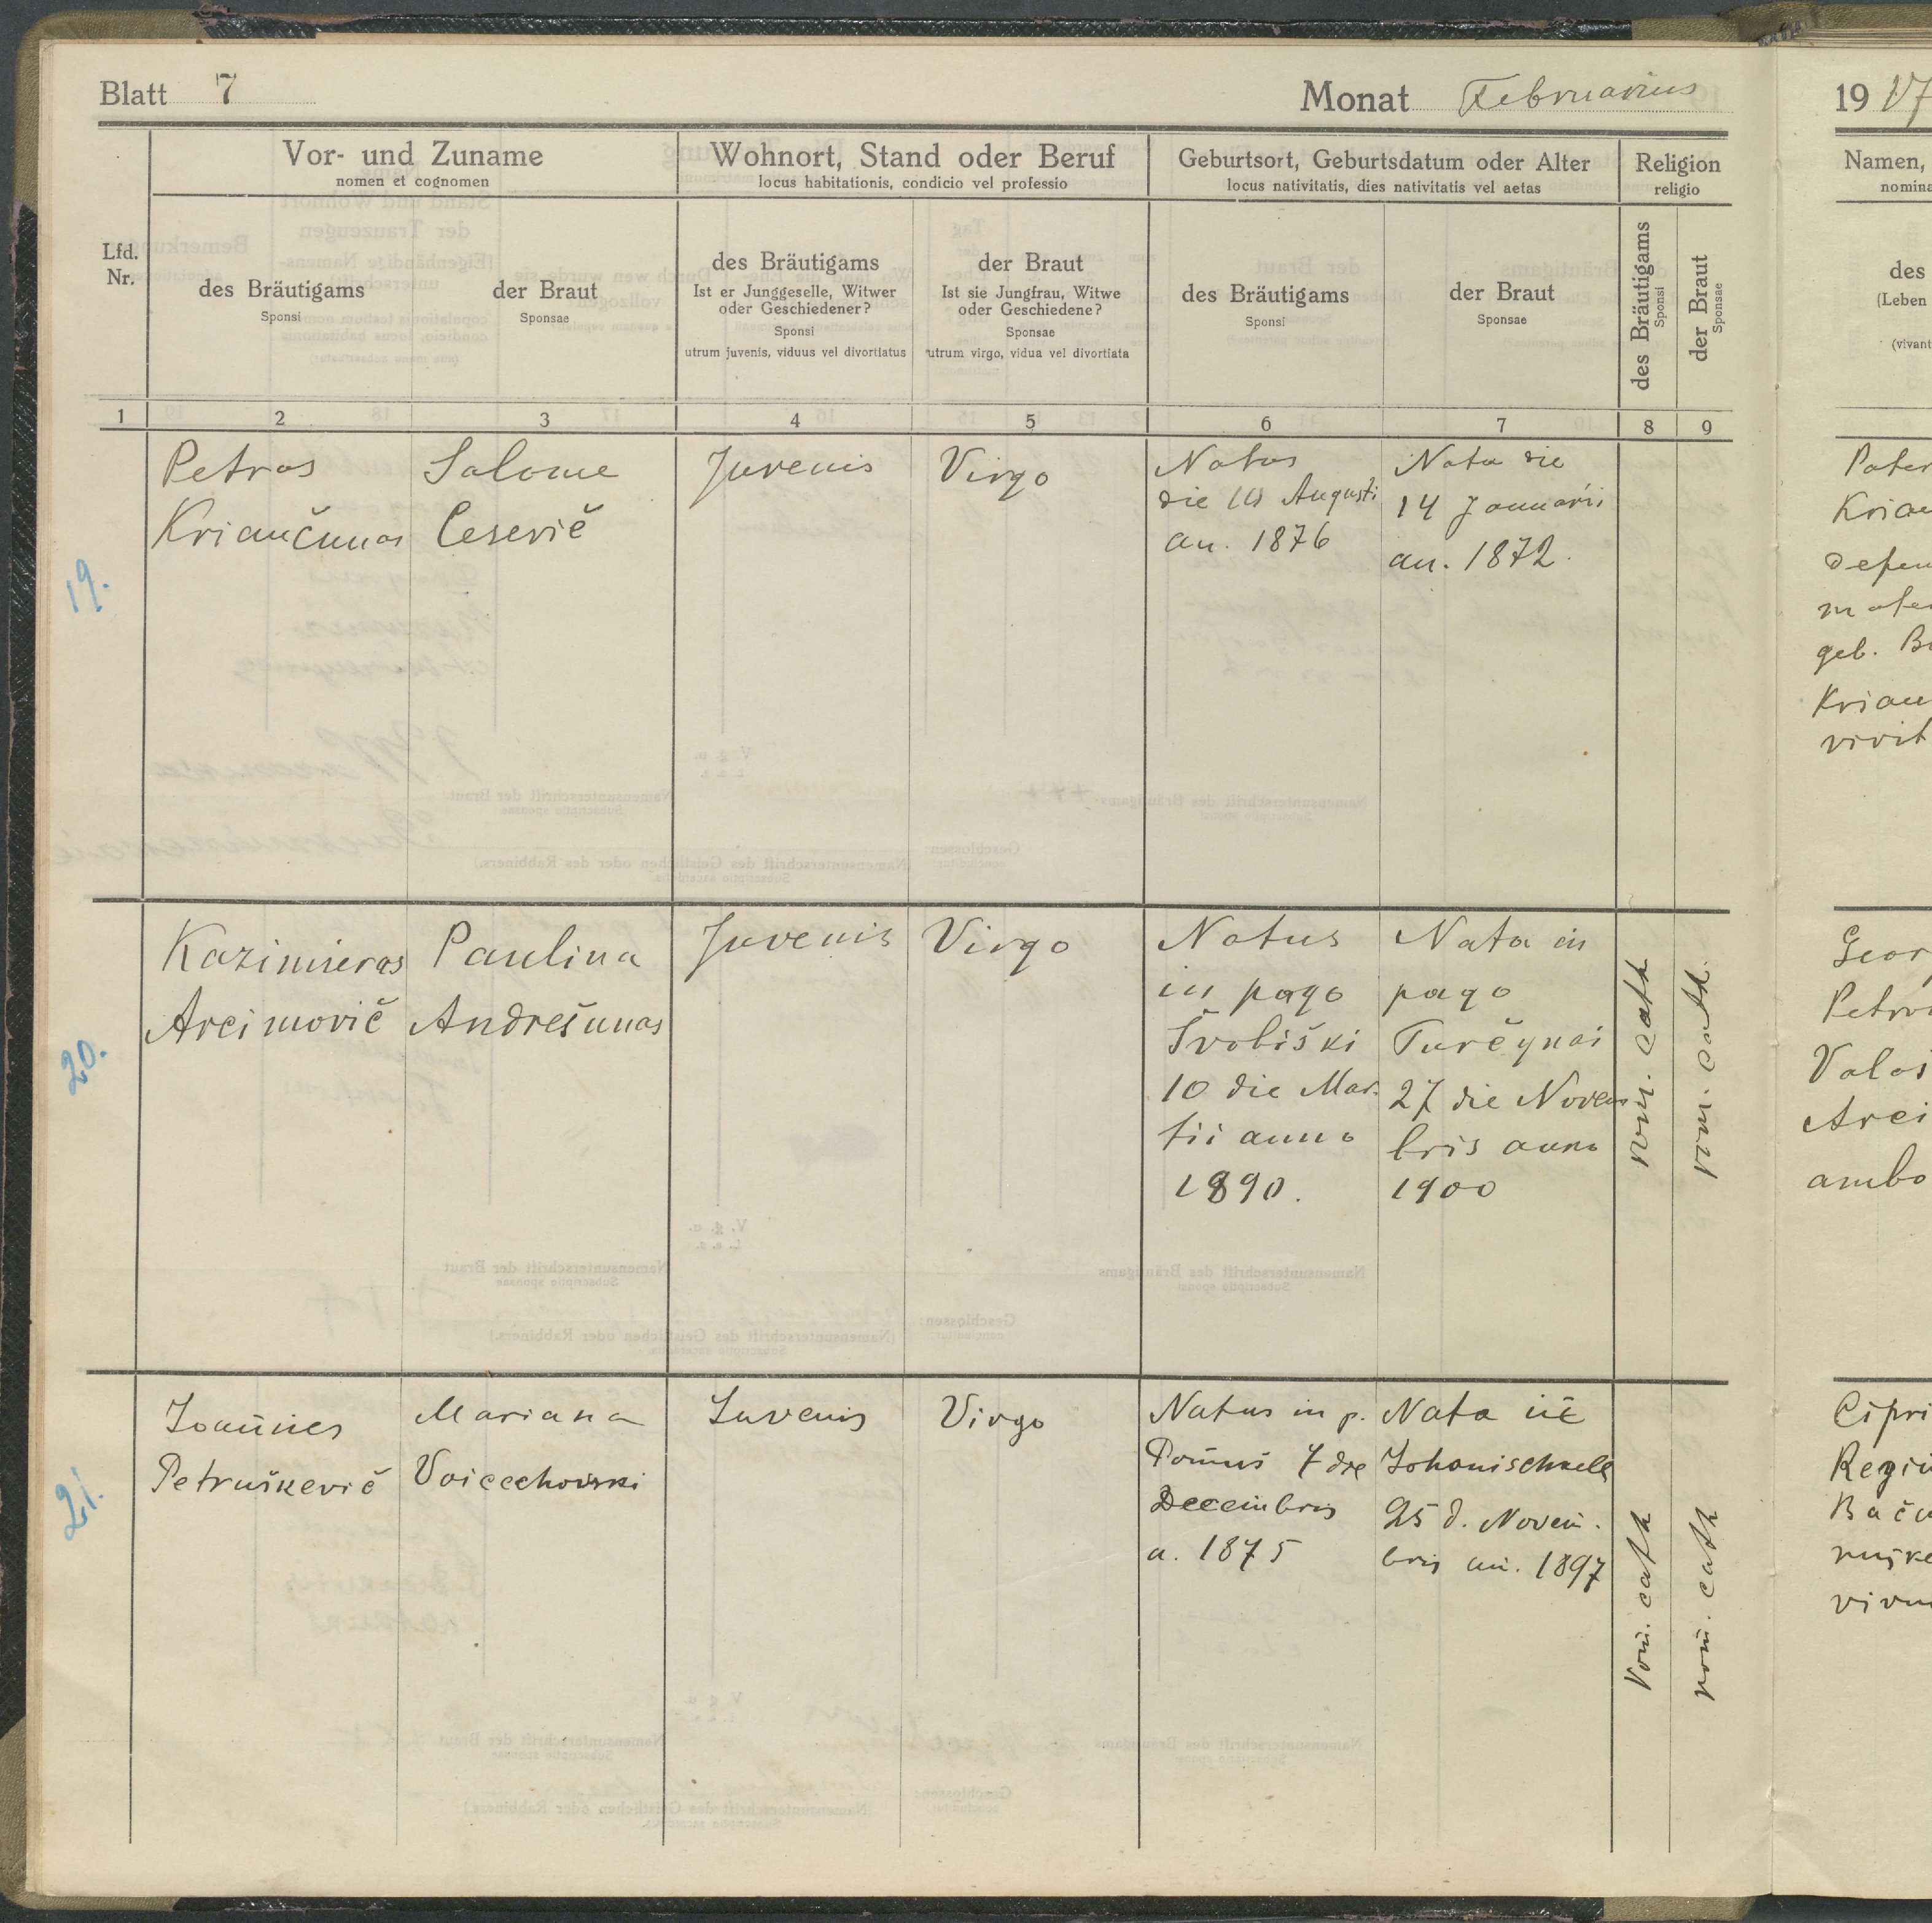 Blatt 7
Monat Februarius
Vor- und Zuname
nomen et cognomen
Wohnort, Stand oder Beruf
locus habitationis, condicio vel professio
Geburtsort, Geburtsdatum oder Alter
locus nativitatis, dies nativitatis vel aetas
Religion
religio
Lfd.
Nr.
des Bräutigams
Sponsi
der Braut
Sponsae
des Bräutigams
Ist er Junggeselle, Witwer
oder Geschiedener?
Sponsi
utrum juvenis, viduus vel divortiatus
der Braut
Ist sie Jungfrau, Witwe
oder Geschiedene?
Sponsae
utrum virgo, vidua vel divortiata
des Bräutigams
Sponsi
der Braut
Sponsae
des Bräutigams
Sponsi
der Braut
Sponsae
1 2 3 4 5 6 7 8 9
19.
Petras
Kriančunas
Salome
Cesevič
Juvenis
Virgo
Natus
die Augusti
an. 1876
Nata die
14 Januarii
an. 1872.
20.
Kazimieras
Arcimovič
Paulina
Andrešunas
Juvenis
Virgo
Natus
in pago
Švobiški
10 die Mar.
tii anno
1890.
Nata in
pago
Turčynai
27 die Novem
bris anno
1900
rom. cath
rom. cath.
21.
Joannes
Petruškevič
Mariana
Voicechovski
Juvenis
Virgo
Natus in p.
7 die
Decembris
a. 1875
Nata in
Johanischkele
25 d. Novem.
bris an. 1897
rom. cath
rom. cath
1917
Namen,
nomina
des
(Leben
(vivant
Pater
Krian
defun
mater
geb. Br
Krian
vivit
Geor
Petro
Valas
Arci
ambo
Cipri
Regin
Baču
ruške
vivu